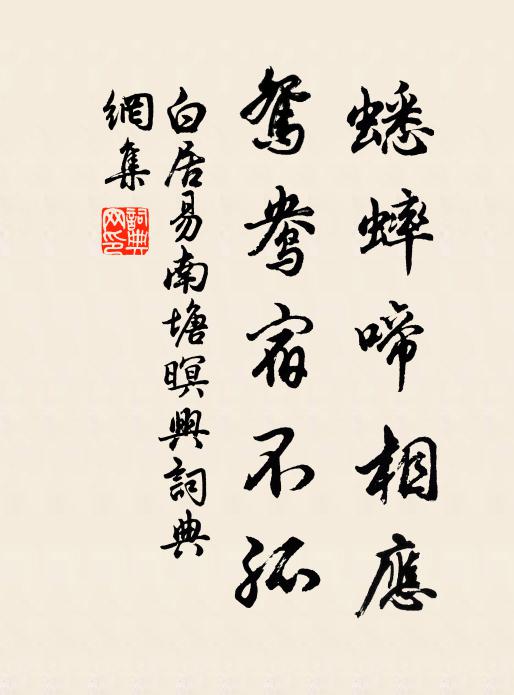 蟋蟀啼相應
鴛鴦宿不孤
白居易南塘暝興詞典
網集
詞典网印